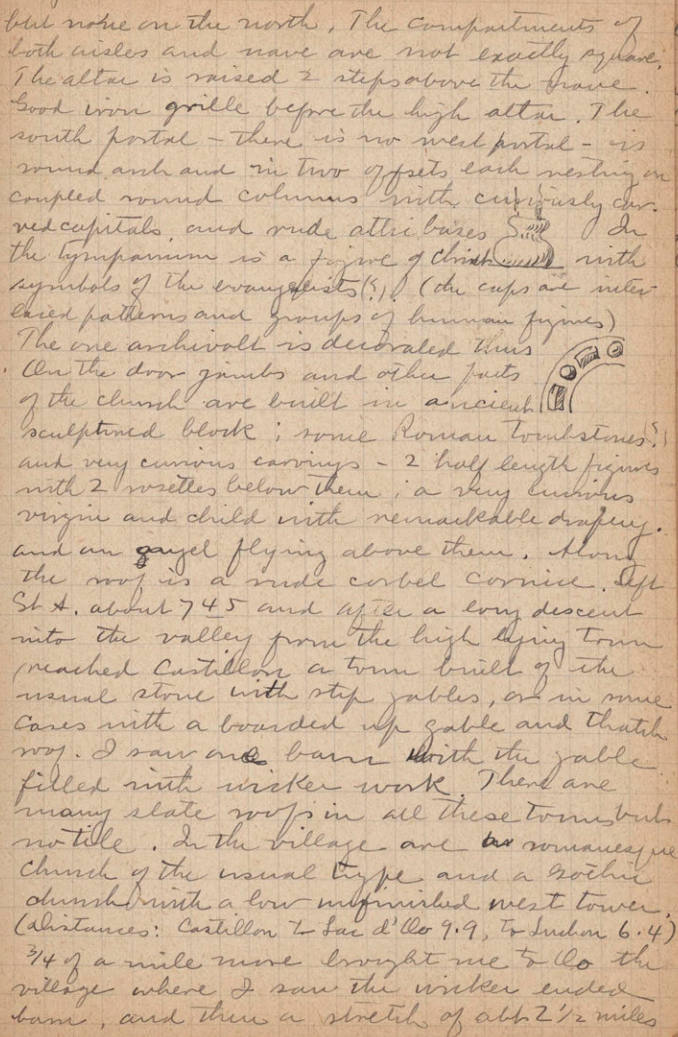 but none on the north. The compartments of
both aisles and nave are not exactly square.
The altar is raised 2 steps above the nave.
Good iron grille before the high altar. The
south portal - there is no west portal - is
round arch and in two offsets each resting on
coupled round columns with curiously car-
ved capitals and rude attic bases In
the tympanum is a figure of Christ with
symbols of the evangelists (?). (The caps are inter-
laced patterns and groups of human figures)
The one archivolt is decorated thus
On the door jambs and other parts
of the church are built in ancient
sculptured block; some Roman tombstones?
and very curious carvings - 2 half length figures
with 2 rosettes below them; a very curious
virgin and child with remarkable drapery.
and an angel flying above them. Along
the roof is a rude corbel cornice. Left
St A. about 745 and after a long descent
into the valley from the high lying town
reached Castillon a town built of the
usual stone with step gables, or in some
cases with a boarded up gable and thatch
roof. I saw one barn with the gable
filled with wicker work. There are
many slate roofs in all these towns but
no tile. In the village are romanesque
church of the usual type and a Gothic
church with a low unfinished west tower.
(Distances: Castillon to Lac d'Oo 9.9, to Luchon 6.4)
3/4 of a mile more brought me to Oo the
village where I saw the wicker ended
barn, and then a stretch of abt 2 1/2 miles